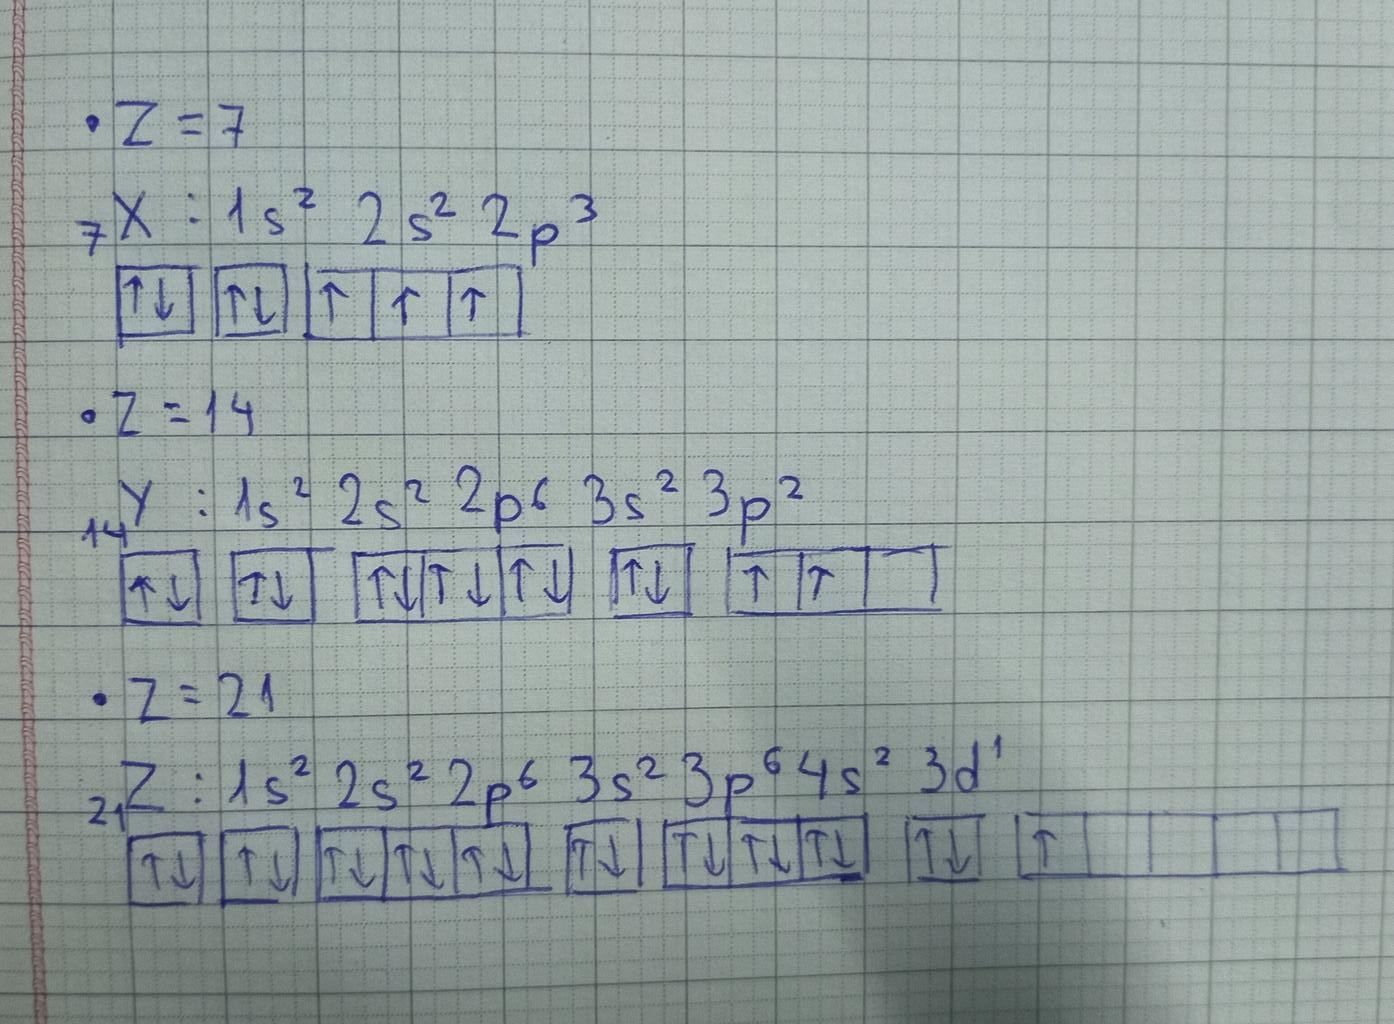 • Z = 7
₇X : 1s² 2s² 2p³
↑↓ ↑↓ ↑ ↑ ↑
• Z = 14
₁₄Y : 1s² 2s² 2p⁶ 3s² 3p²
↑↓ ↑↓ ↑↓ ↑↓ ↑↓ ↑↓ ↑ ↑
• Z = 21
₂₁Z : 1s² 2s² 2p⁶ 3s² 3p⁶ 4s² 3d¹
↑↓ ↑↓ ↑↓ ↑↓ ↑↓ ↑↓ ↑↓ ↑↓ ↑↓ ↑↓ ↑